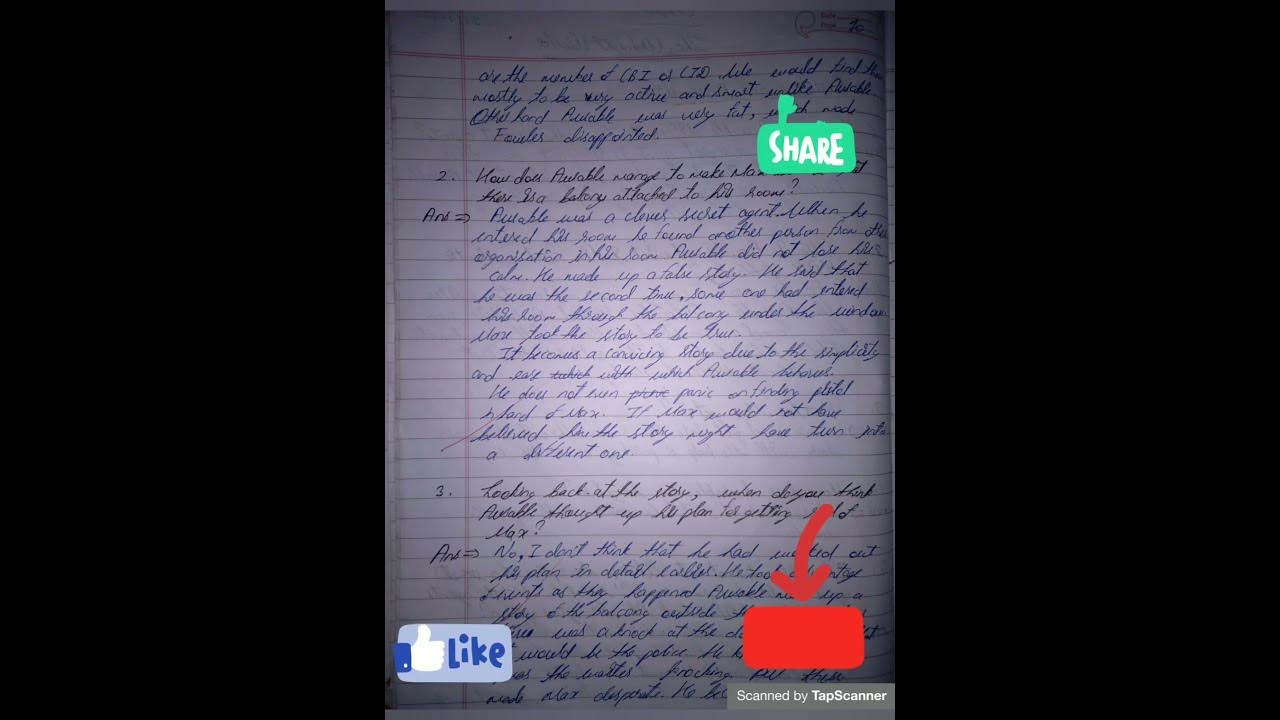 Date
Page 10
are the member of CBI or CID. We would find them
mostly to be very active and smart unlike Ausable
Other hand Ausable was very fat, which made
Fowler disappointed.
SHARE
2. How does Ausable manage to make Max
there is a balcony attached to his room?
Ans ⇒ Ausable was a clever secret agent. When he
entered his room he found another person from other
organisation in his room Ausable did not lose his
calm. He made up a false story. He said that
he was the second time, some one had entered
his room through the balcony under the window
Max took the story to be true.
It becomes a convicing story due to the simplicity
and ease which with which Ausable behaves.
He does not even picnic panic on finding pistol
in hand of Max. If Max would not have
believed him the story might have turn into
a different one.
3. Looking back at the story, when do you think
Ausable thought up his plan for getting rid of
Max?
Ans ⇒ No, I don't think that he had worked out
his plan in detail earlier. He took advantage
of events as they happened Ausable made up a
story of the balcony outside
was a knock at the
would be the police He
was the waiter knocking. All these
made Max desperate. He
Like
Scanned by TapScanner